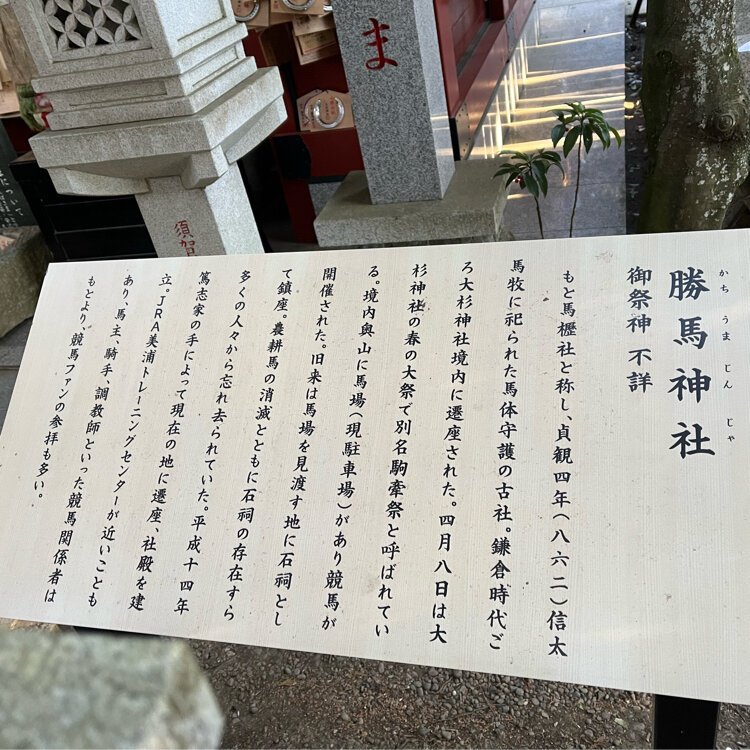 勝馬神社
かちうまじんじゃ
御祭神 不詳
もと馬櫪社と称し、貞観四年(八六二)信太
馬牧に祀られた馬体守護の古社。鎌倉時代ご
ろ大杉神社境内に遷座された。四月八日は大
杉神社の春の大祭で別名駒牽祭と呼ばれてい
る。境内奥山に馬場(現駐車場)があり競馬が
開催された。旧来は馬場を見渡す地に石祠とし
て鎮座。農耕馬の消滅とともに石祠の存在すら
多くの人々から忘れ去られていた。平成十四年
篤志家の手によって現在の地に遷座、社殿を建
立。JRA美浦トレーニングセンターが近いことも
あり、馬主、騎手、調教師といった競馬関係者は
もとより、競馬ファンの参拝も多い。
ま
須賀